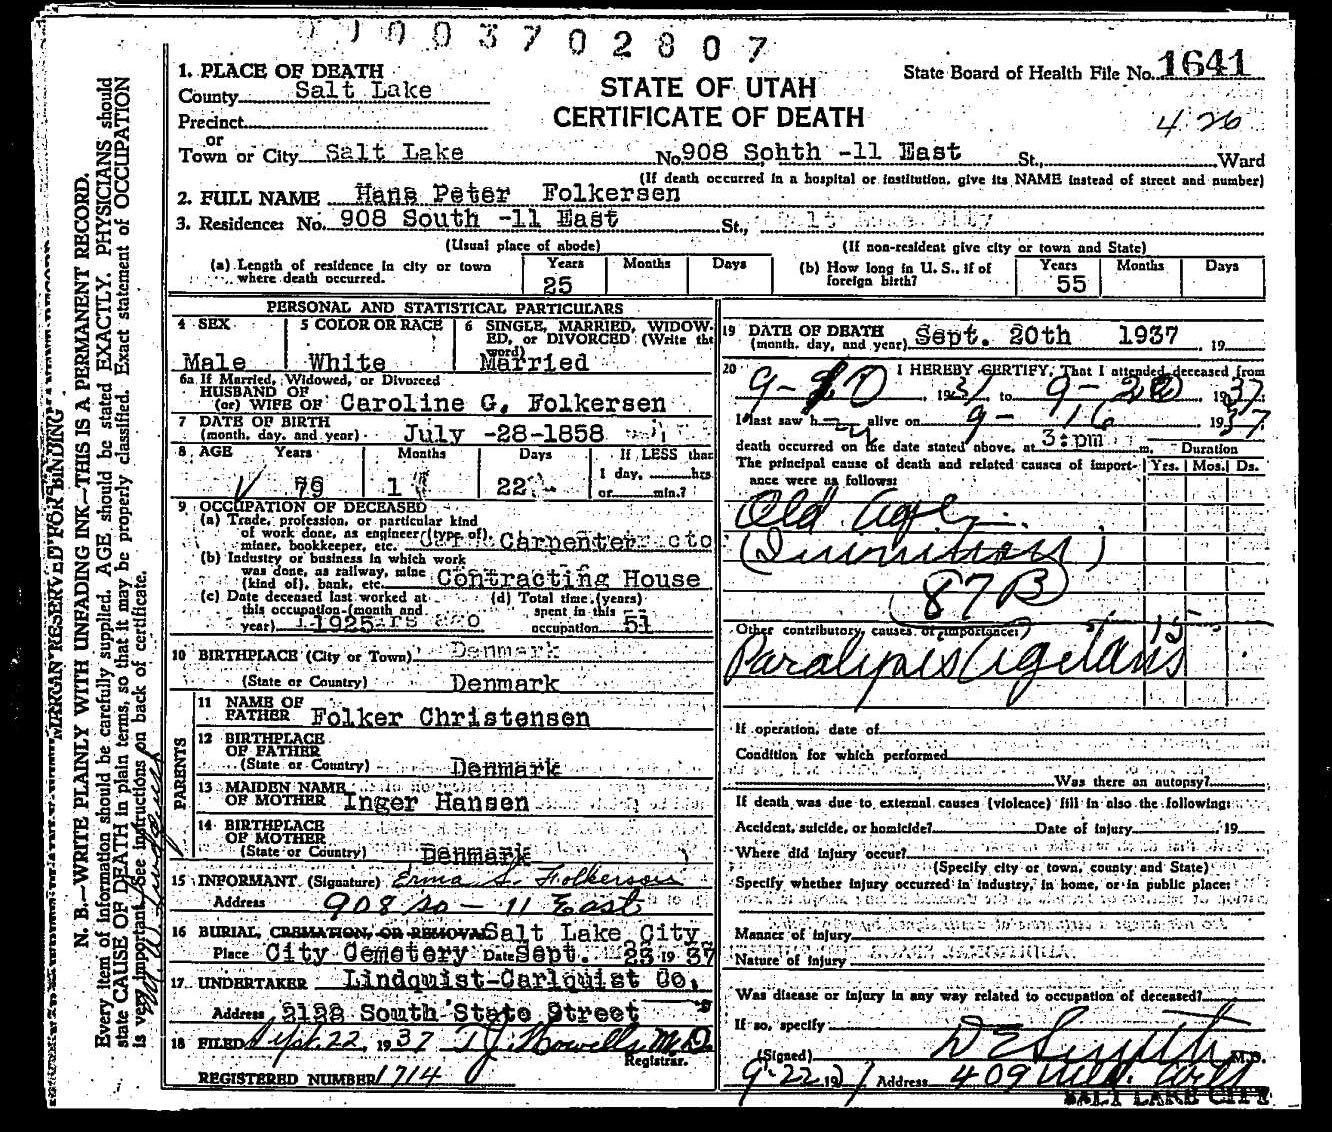 01003702807
1. PLACE OF DEATH
County Salt Lake
Precinct
or
Town or City Salt Lake
STATE OF UTAH
CERTIFICATE OF DEATH
State Board of Health File No. 1641
426
No. 908 Sohth -11 East St., Ward
(If death occurred in a hospital or institution, give its NAME instead of street and number)
2. FULL NAME Hans Peter Folkersen
3. Residence: No. 908 South -11 East St., Salt Lake City
(Usual place of abode) (If non-resident give city or town and State)
(a) Length of residence in city or town where death occurred. Years 25 Months Days
(b) How long in U. S., if of foreign birth? Years 55 Months Days
PERSONAL AND STATISTICAL PARTICULARS
4 SEX Male
5 COLOR OR RACE White
6 SINGLE, MARRIED, WIDOWED, or DIVORCED (Write the word) Married
6a If Married, Widowed, or Divorced
HUSBAND OF
(or) WIFE OF Caroline G. Folkersen
7 DATE OF BIRTH
(month, day, and year) July -28-1858
8 AGE Years 79 Months 1 Days 22
If LESS than
1 day, hrs
or min.?
9 OCCUPATION OF DECEASED
(a) Trade, profession, or particular kind
of work done, as engineer (type of),
miner, bookkeeper, etc. Carpenter
(b) Industry or business in which work
was done, as railway, mine
(kind of), bank, etc. Contracting House
(c) Date deceased last worked at
this occupation (month and
year) 1925
(d) Total time (years)
spent in this
occupation 51
10 BIRTHPLACE (City or Town) Denmark
(State or Country) Denmark
PARENTS
11 NAME OF
FATHER Folker Christensen
12 BIRTHPLACE
OF FATHER
(State or Country) Denmark
13 MAIDEN NAME
OF MOTHER Inger Hansen
14 BIRTHPLACE
OF MOTHER
(State or Country) Denmark
15 INFORMANT (Signature) Erma S. Folkersen
Address 908 So - 11 East
16 BURIAL, CREMATION, OR REMOVAL Salt Lake City
Place City Cemetery Date Sept. 23 19 37
17 UNDERTAKER Lindquist-Carlquist Co.
Address 2128 South State Street
18 FILED Sept. 22, 1937 T.J. Howells M.D.
Registrar.
REGISTERED NUMBER 1714
19 DATE OF DEATH
(month, day, and year) Sept. 20th 1937 , 19
20 I HEREBY CERTIFY, That I attended deceased from
, 1937 to 9- 20 1937.
I last saw h alive on 9- 16 1937
death occurred on the date stated above, at 3:pm m.
Duration
The principal cause of death and related causes of importance were as follows:
Yrs. Mos. Ds.
Old Age
87B
Other contributory causes of importance:
Paralysis Agitans 15
If operation, date of
Condition for which performed
Was there an autopsy?
If death was due to external causes (violence) fill in also the following:
Accident, suicide, or homicide? Date of injury , 19
Where did injury occur?
(Specify city or town, county and State)
Specify whether injury occurred in industry, in home, or in public place:
Manner of injury
Nature of injury
Was disease or injury in any way related to occupation of deceased?
If so, specify
(Signed) D E Smyth M.D.
9-22 19 Address 409 Med. Arts
SALT LAKE CITY
MARGIN RESERVED FOR BINDING
N. B.—WRITE PLAINLY WITH UNFADING INK—THIS IS A PERMANENT RECORD.
Every item of information should be carefully supplied. AGE should be stated EXACTLY. PHYSICIANS should
state CAUSE OF DEATH in plain terms, so that it may be properly classified. Exact statement of OCCUPATION
is very important. See instructions on back of certificate.